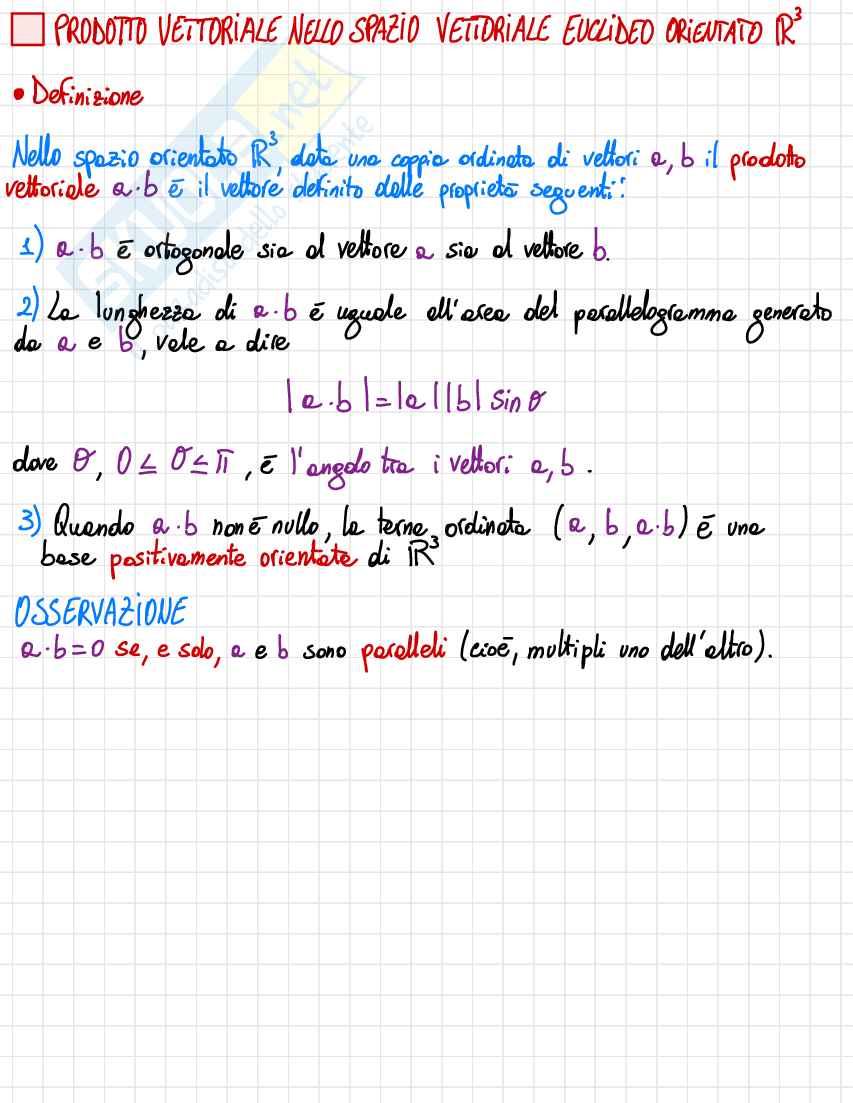 PRODOTTO VETTORIALE NELLO SPAZIO VETTORIALE EUCLIDEO ORIENTATO ℝ³
• Definizione
Nello spazio orientato ℝ³, data una coppia ordinata di vettori a, b il prodotto
vettoriale a·b ē il vettore definito dalle proprietà seguenti:
1) a·b ē ortogonale sia al vettore a sia al vettore b.
2) La lunghezza di a·b ē uguale all'area del parallelogramma generato
da a e b, vale a dire
|a·b|=|a||b| sin θ
dove θ, 0 ≤ θ ≤ π, ē l'angolo tra i vettori a, b.
3) Quando a·b non ē nullo, la terna ordinata (a, b, a·b) ē una
base positivamente orientata di ℝ³
OSSERVAZIONE
a·b=0 se, e solo, a e b sono paralleli (cioē, multipli uno dell'altro).
SKUOLA.net
il paradiso dello studente